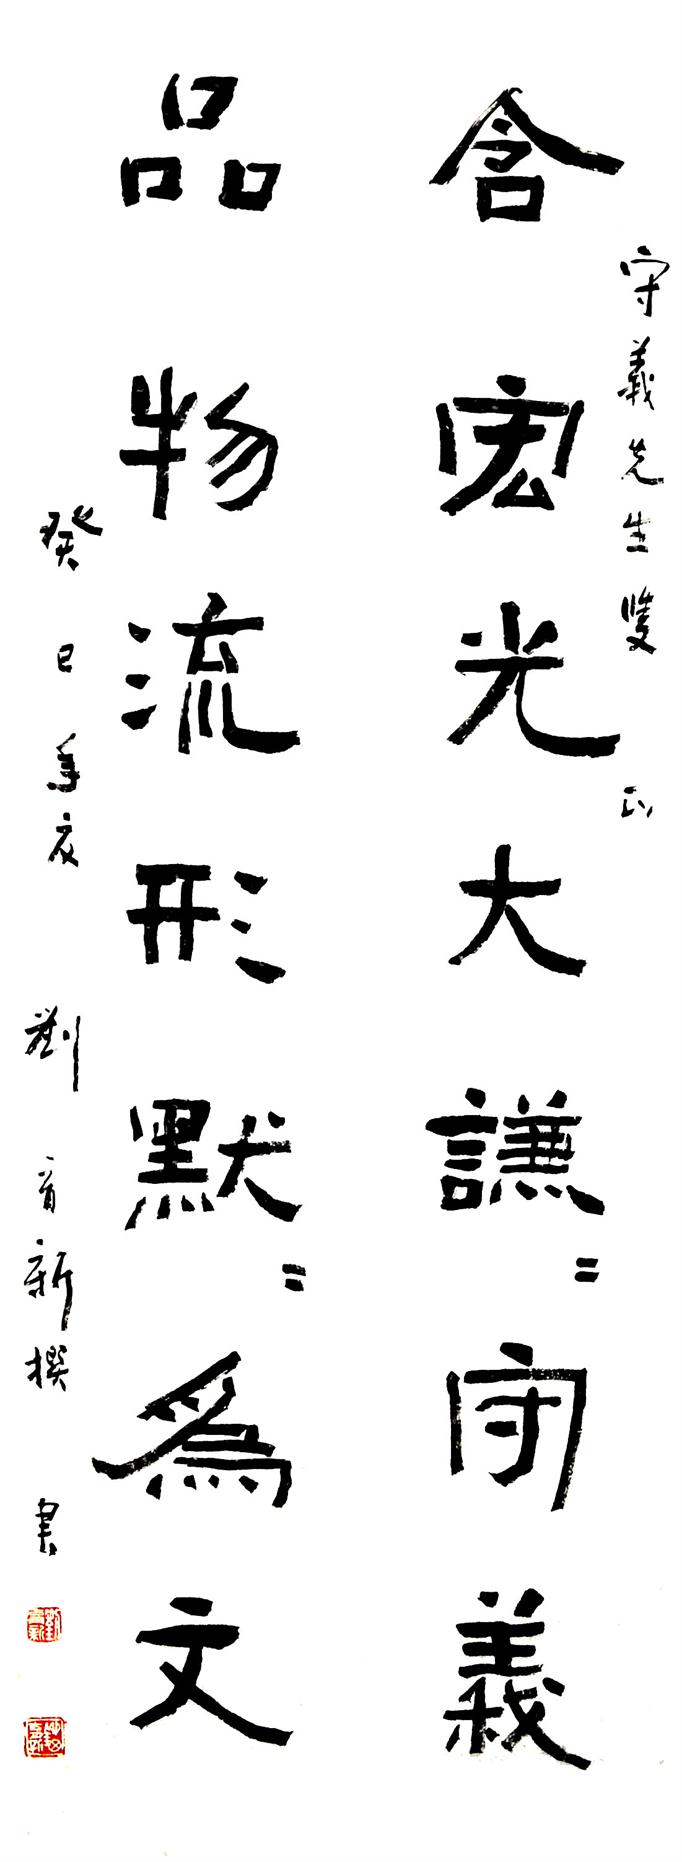 守義先生雙正
含宏光大謙=守義
品物流形默=爲文
癸巳年 劉育新撰書